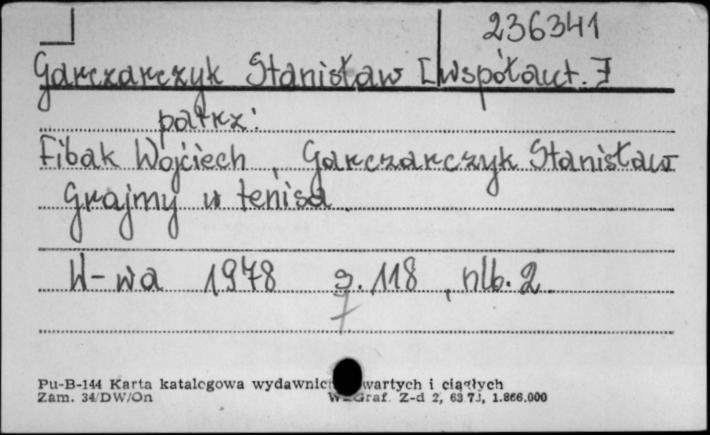 236341
Garczarczyk Stanisław [współaut.]
patrz:
Fibak Wojciech, Garczarczyk Stanisław
Grajmy w tenisa
W-wa 1978 s. 118, nlb. 2
Pu-B-144 Karta katalogowa wydawnic wartych i ciągłych
Zam. 34/DW/On Graf. Z-d 2, 1.866.000